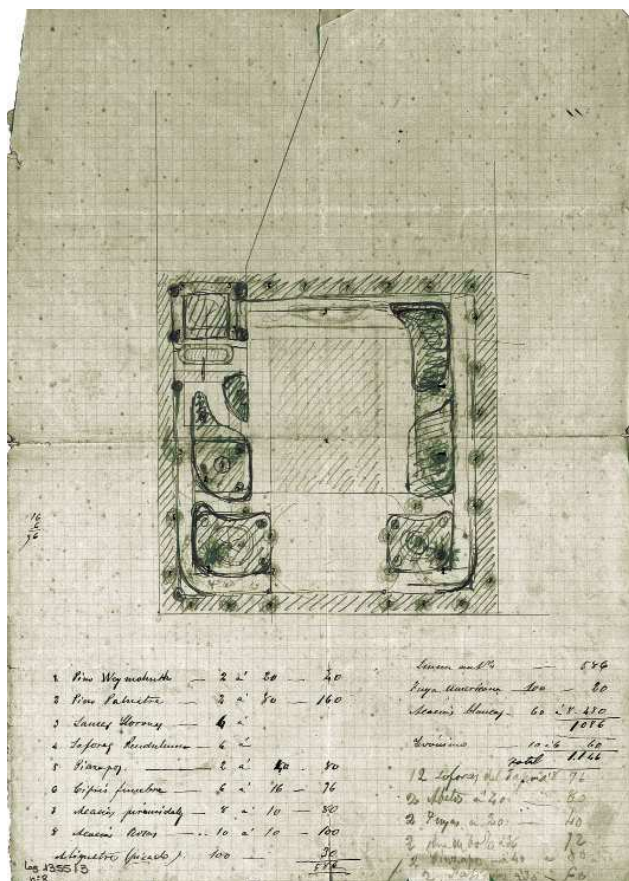 16
6
96
1 Pino Weymohuth — 2 a' 20 — 40
2 Pino Palustre — 2 a' 80 — 160
3 Sauces Llorones — 6 a'
4 Soforas Pendulums — 6 a'
5 Pinzapos — 2 a' 40 . 80
6 Ciprés funebre — 6 a' 16 — 96
7 Acacias piramidales — 8 a' 10 — 80
8 Acacias Rosas — 10 a' 10 — 100
(picado) 100 — 30
586
Suma — 586
Tuya americana 100 — 20
Acacias blancas — 60 a' 8 . 480
1086
Evónimo — 10 a' 6 60
Total 1.146
12 Soforas del Japón a' 8 96
2 Abetos a' 40 — 80
2 Tuyas a' 20 — 40
2 12
2 Pinzapos a' 40 — 80
2 a' 30 — 60
Leg 1355/3
nº 8